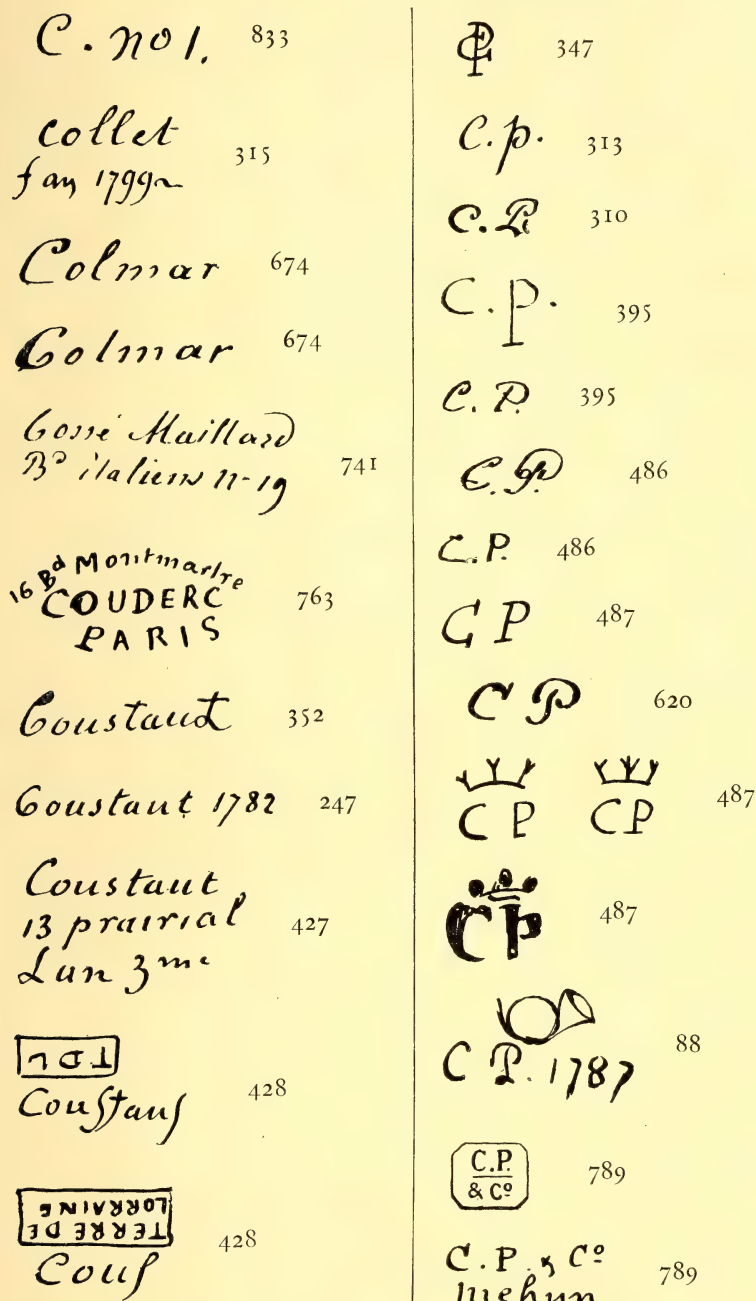 C. no 1. 833
Collet
f an 1799 315
Colmar 674
Colmar 674
Cossé Maillard
Bd italiens n - 19 741
16 Bd Montmartre
COUDERC
PARIS 763
Coustant 352
Coustant 1782 247
Coustant
13 prairial
Lan 3me 427
T D L
Couſtanſ 428
TERRE DE
LORRAINE
Couſ 428
CP 347
C. p. 313
C. P. 310
C. P. 395
C. P. 395
C. P. 486
C. P. 486
C P 487
C P 620
C P C P 487
C P 487
C P. 1787 88
C.P.
& Co 789
C. P. & Co
mehun 789